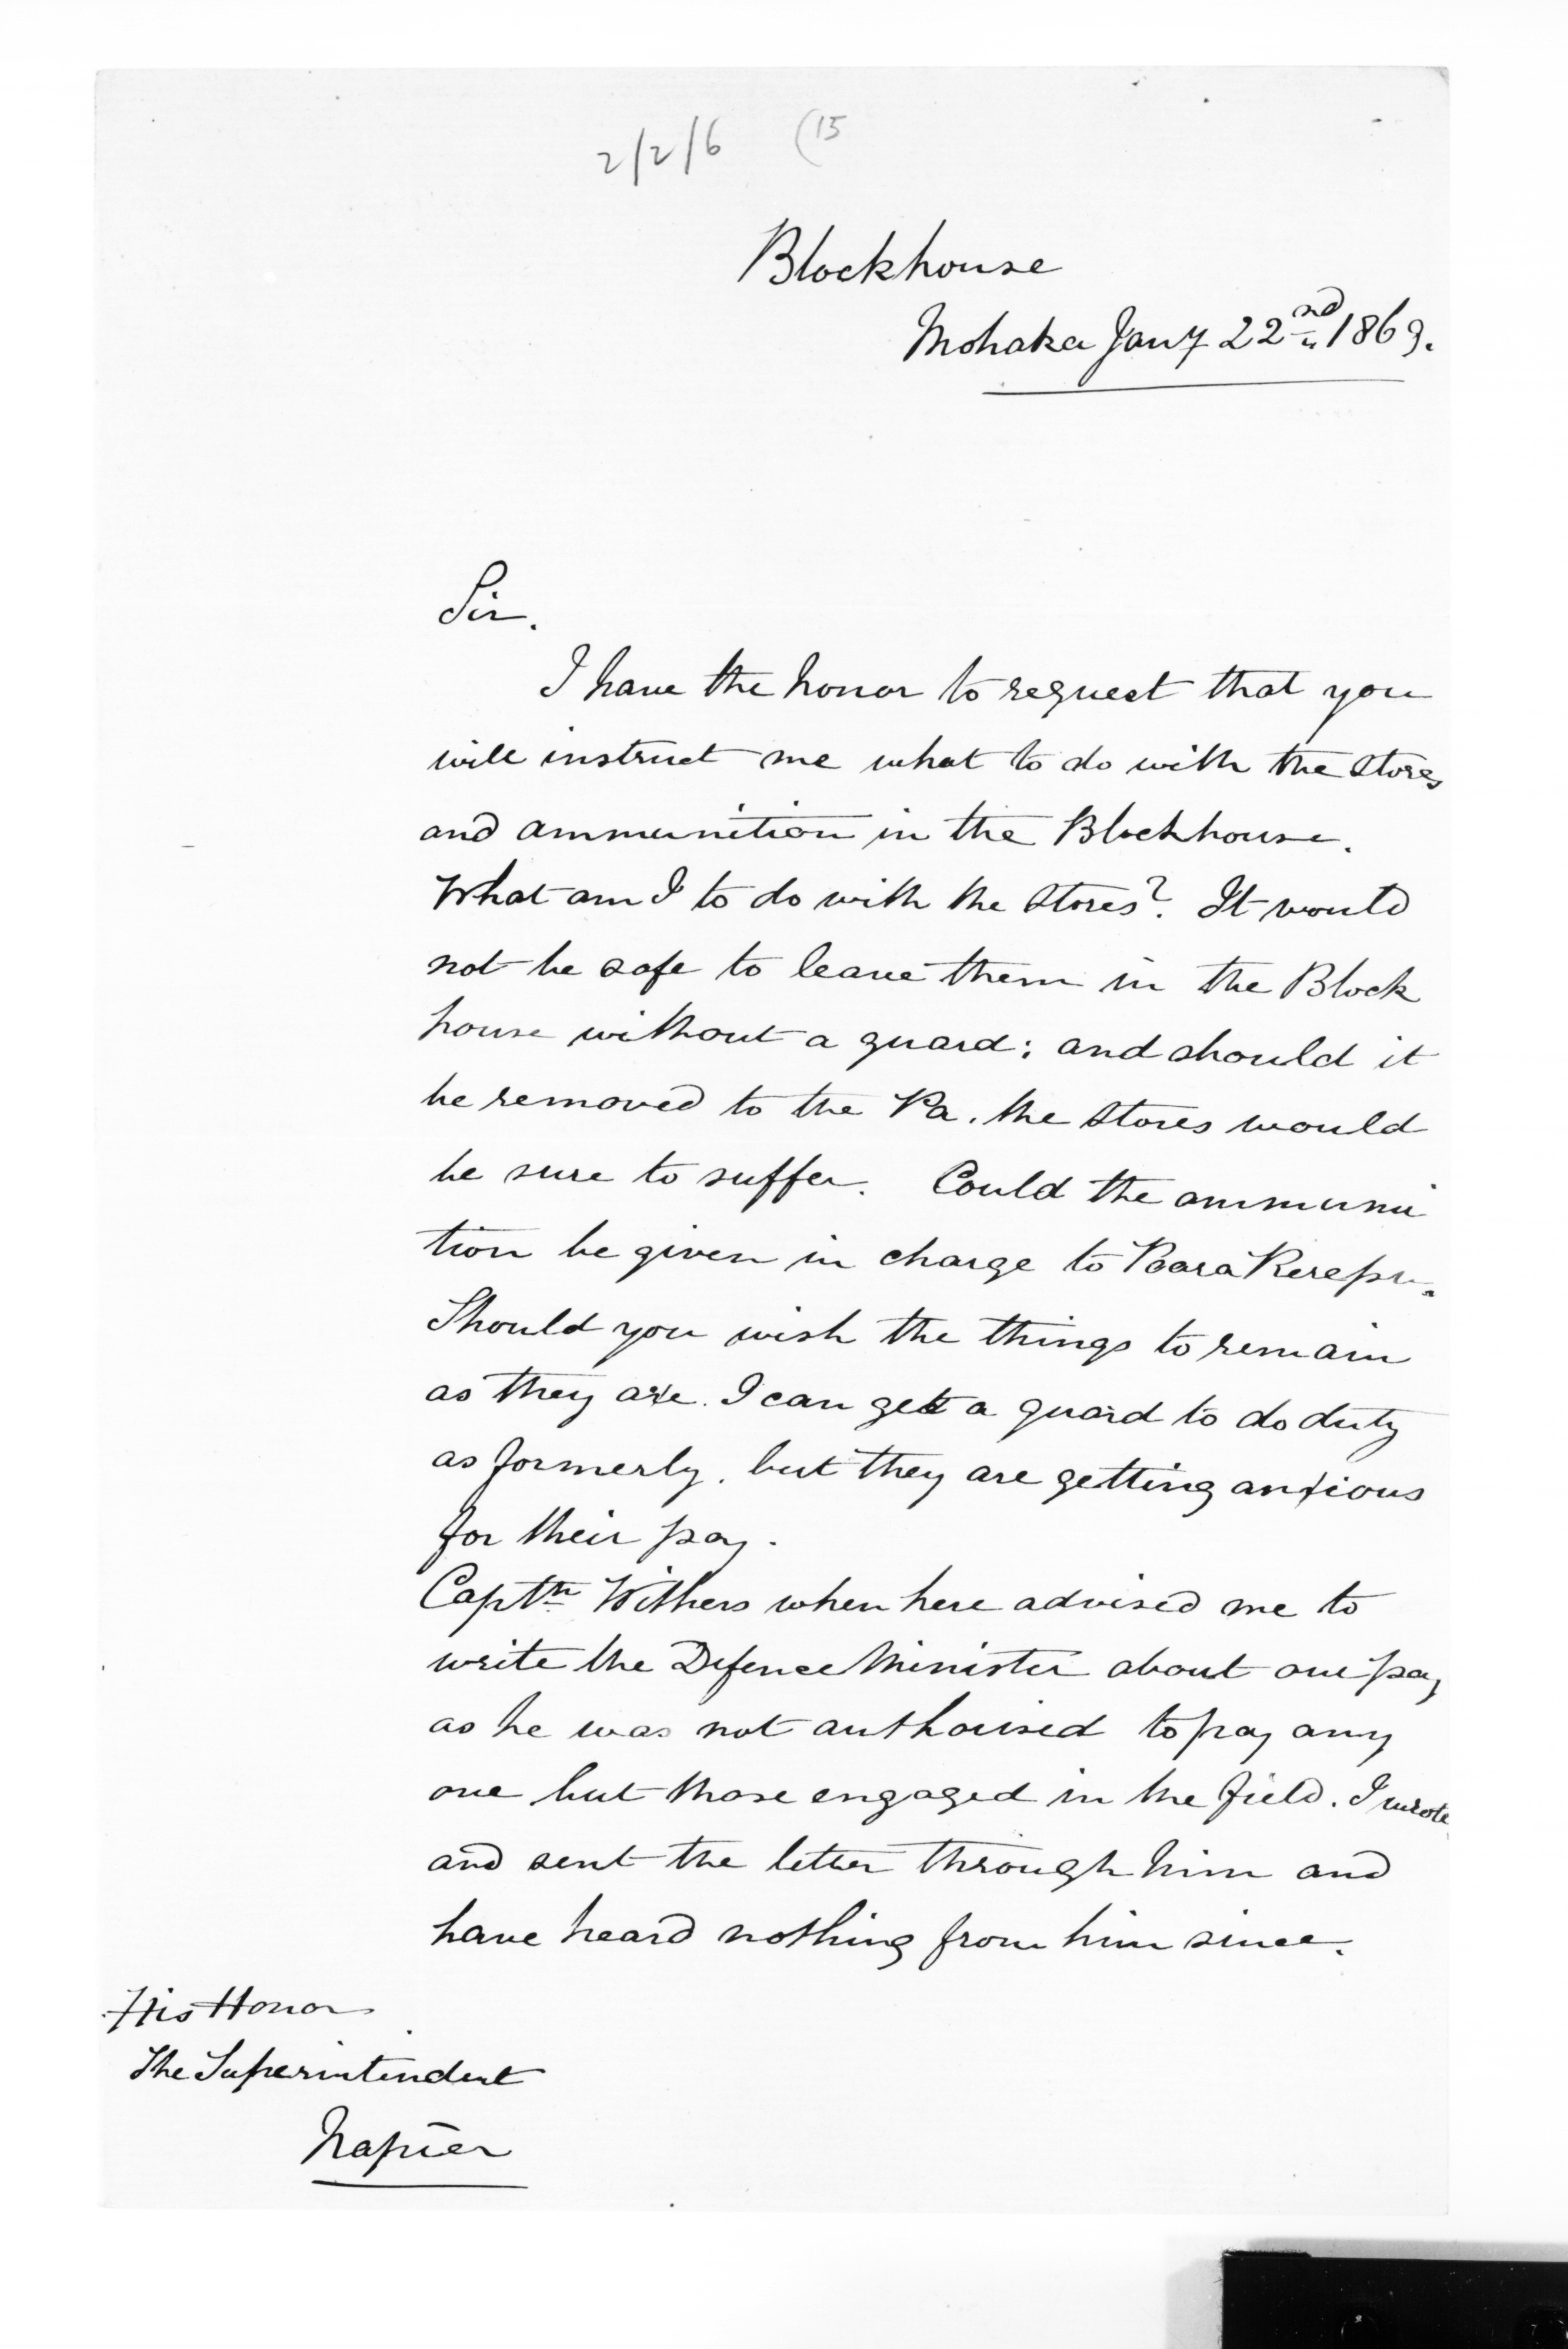 2/2/6 (15
Blockhouse
Mohaka Jany 22nd 1869.
Sir.
I have the honor to request that you
will instruct me what to do with the stores
and ammunition in the Blockhouse.
What am I to do with the stores? It would
not be safe to leave them in the Block
house without a guard; and should it
be removed to the Pa. the stores would
be sure to suffer. Could the ammuni
tion be given in charge to Paara
Should you wish the things to remain
as they are. I can get a guard to do duty
as formerly. but they are getting anxious
for their pay.
Captn Withers when here advised me to
write the Defence Minister about our pay
as he was not authorised to pay any
one but those engaged in the field. I wrote
and sent the letter through him and
have heard nothing from him since.
His Honor
The Superintendent
Napier